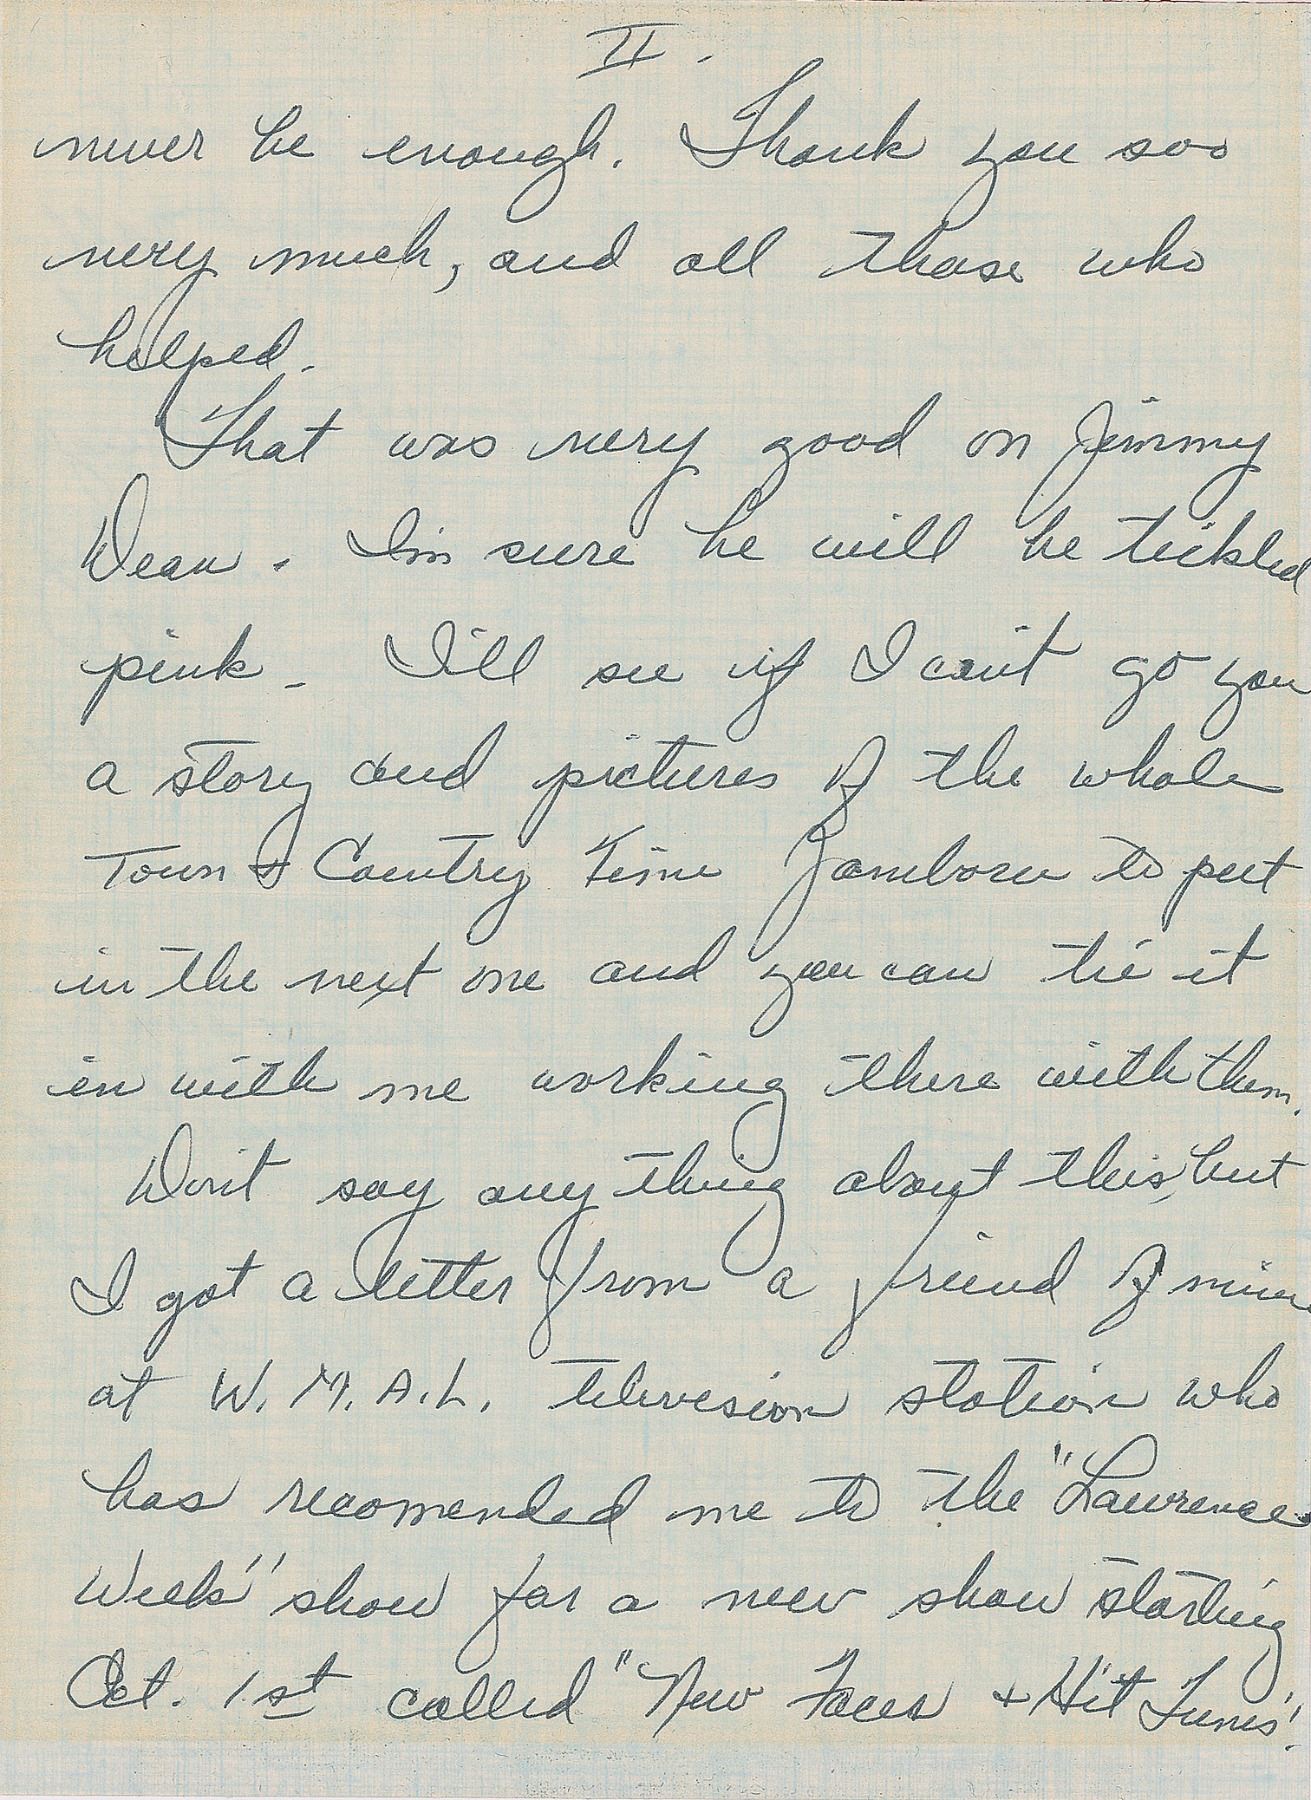 II.
never be enough. Thank you soo
very much, and all those who
helped.
That was very good on Jimmy
Dean. I'm sure he will be tickled
pink. I'll see if I can't go you
a story and pictures of the whole
Town & Country Time Jamboree to put
in the next one and you can tie it
in with me working there with them.
Don't say anything about this, but
I got a letter from a friend of mine
at W.M.A.L. television station who
has recomended me to the "Lawrence
Welk" show for a new show starting
Oct. 1st called "New Faces + Hit Tunes".